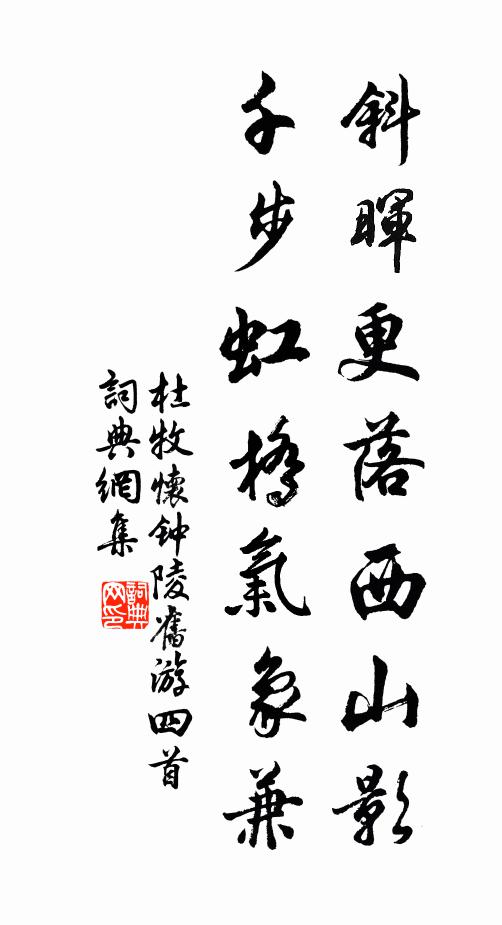 斜暉更落西山影
千步虹橋氣象兼
杜牧懷鈡陵舊游四首
詞典網集
詞典网印